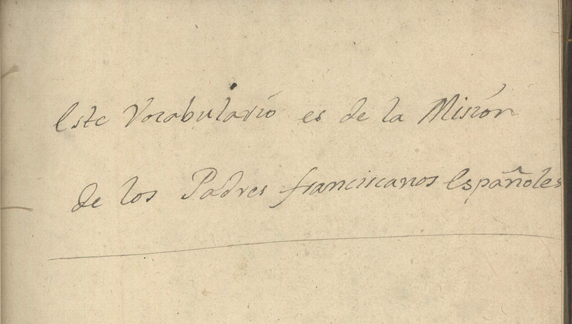 Este Vocabulario es de la Misión
de los Padres franciscanos Españoles